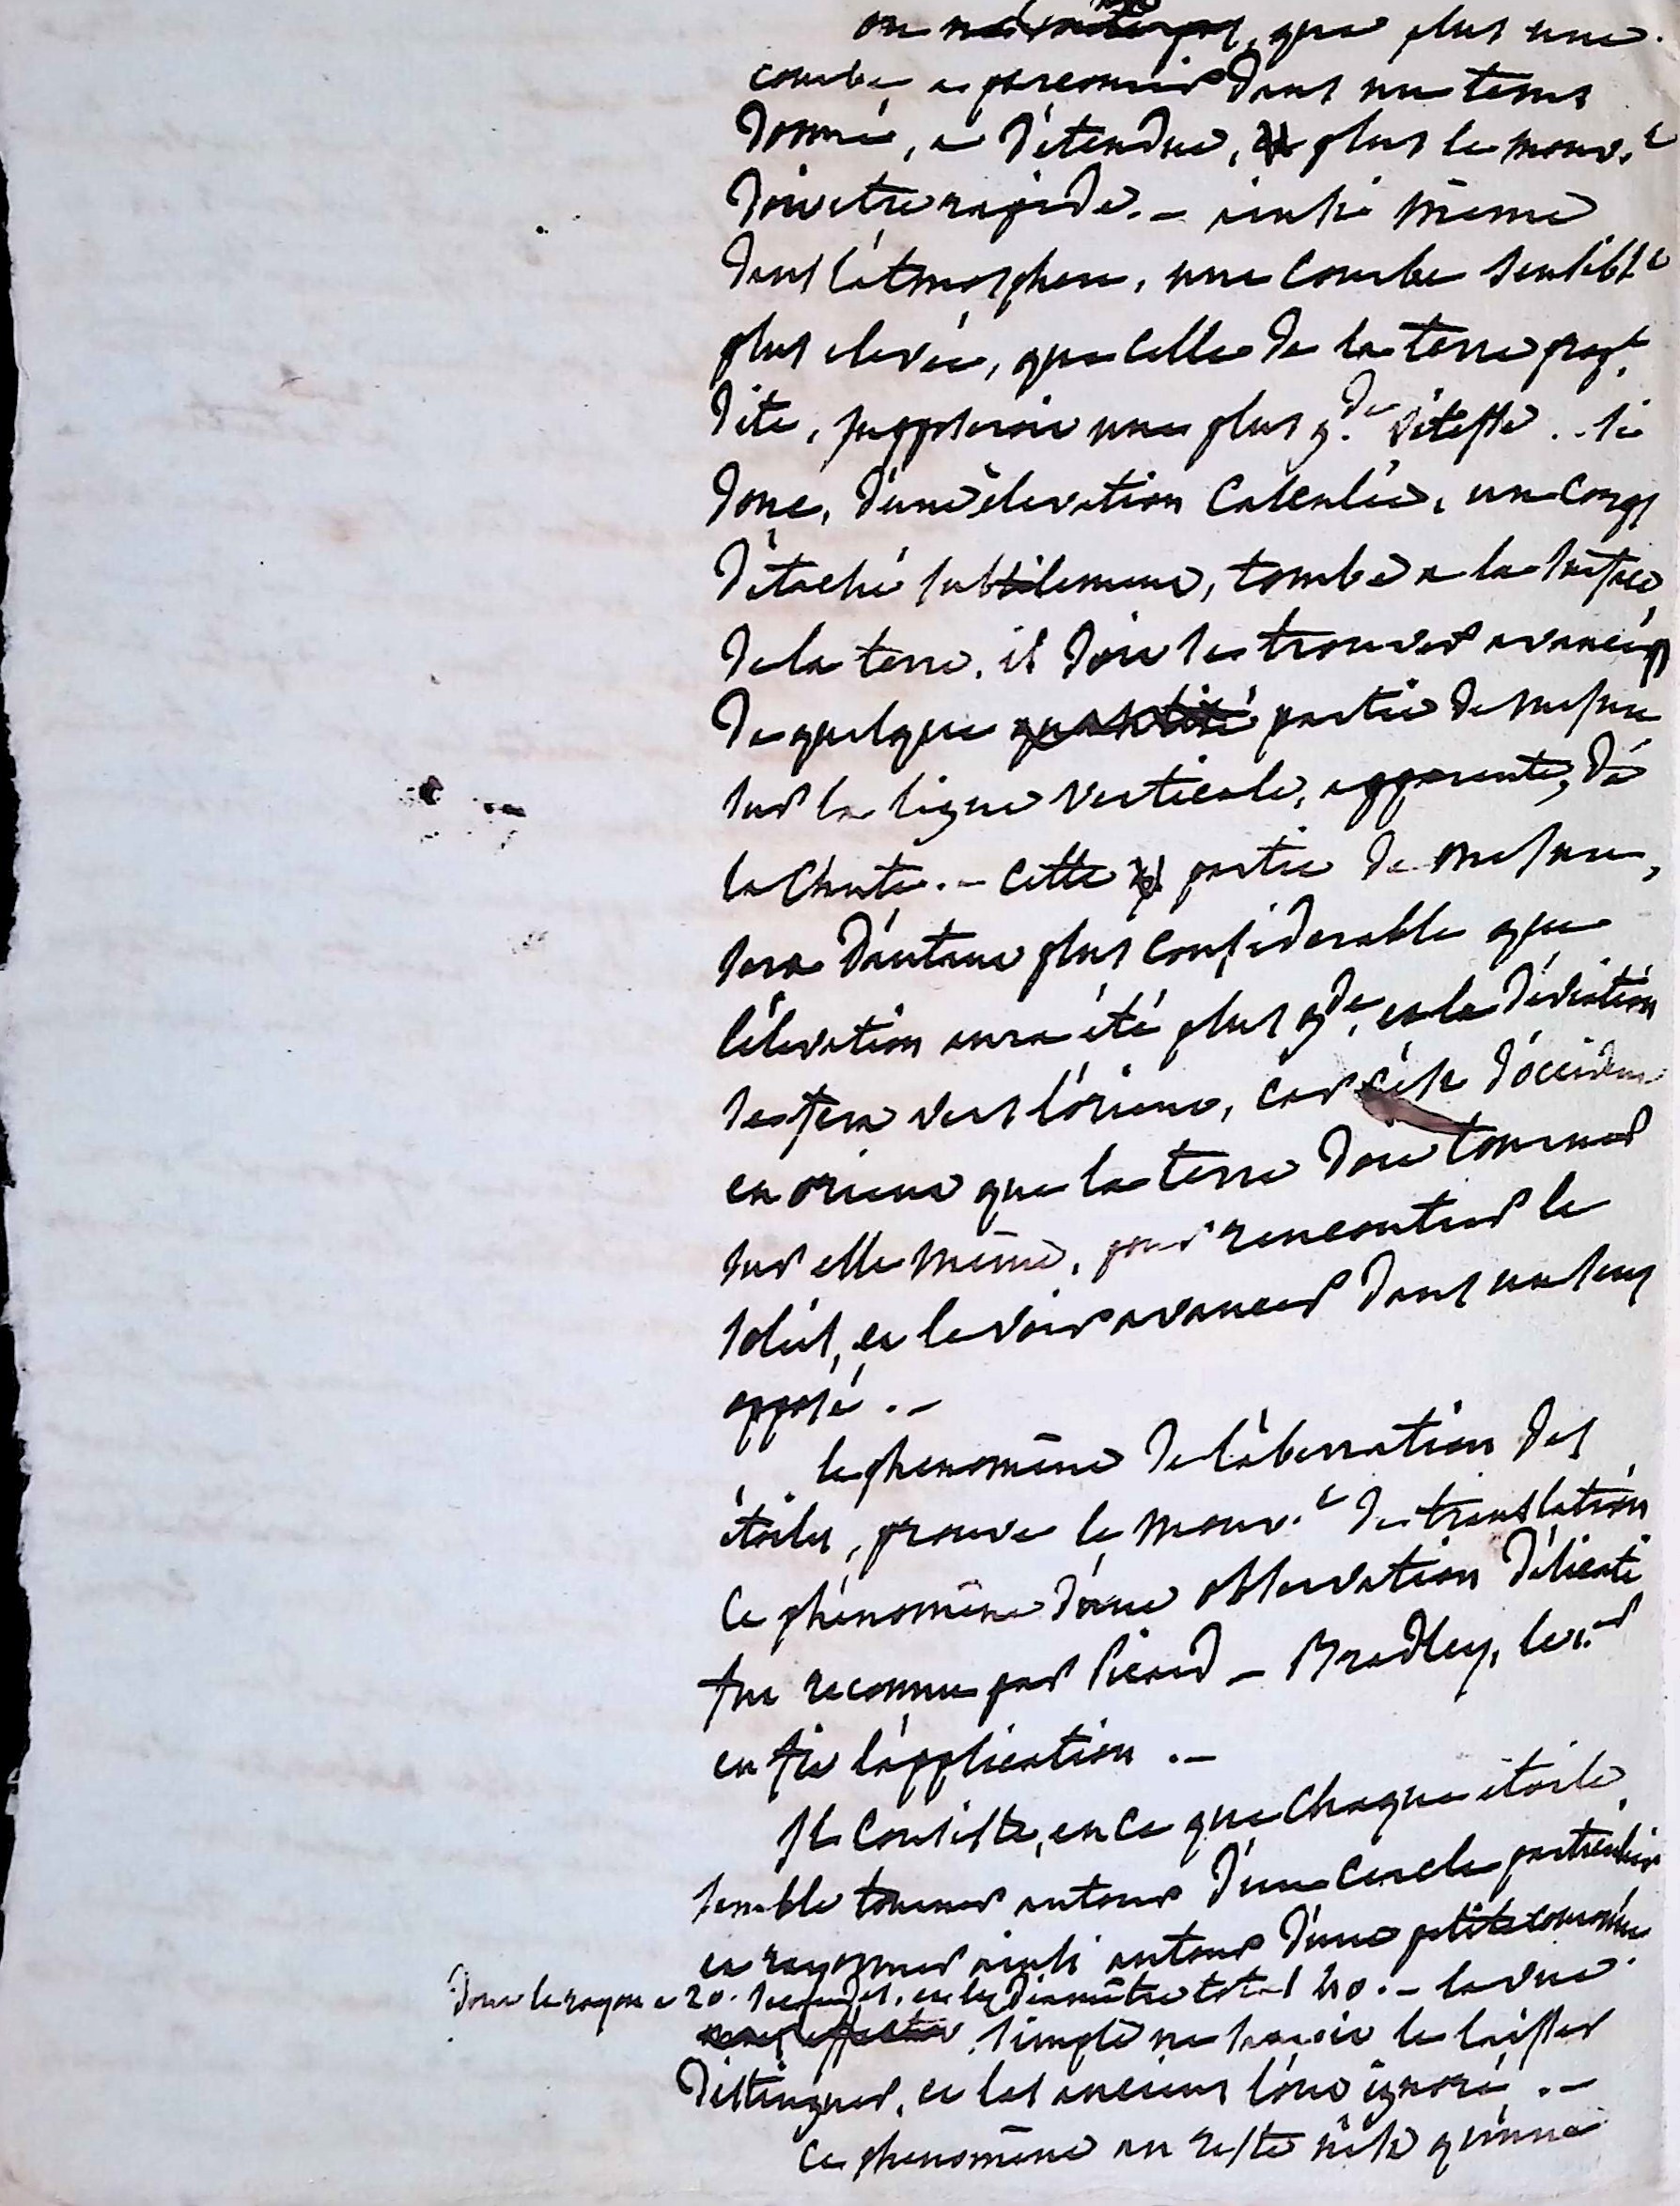 on que plus une
courbe a parcourir dans un tems
donné, a d'étendue, plus le mouv.t
doit etre rapide. — ainsi même
dans l'atmosphere, une courbe sensibl.t
plus elevée, que celle de la terre prop.t
dite, supposerait une plus g.de vitesse .. si
donc, d'une élevation calculée, un corps
détaché subitement, tombe a la surface
de la terre, il doit se trouver avancé
de quelque partie de mesure
sur la ligne verticale, apparente, de
la chute. — cette partie de mesure,
sera d'autant plus considerable que
l'élevation aura été plus g.de, et la déviation
se fera vers l'orient, car c'est d'occident
en orient que la terre doit tourner
sur elle même, pour rencontrer le
soleil, et le voir avancer dans un sens
opposé. —
le phenomêne de l'aberration des
étoiles, prouve le mouv.t de translation
ce phénomêne d'une observation délicate
fut reconnu par Picard — Bradley, le 1.er
en fit l'application. —
Il consiste, en ce que chaque étoile
semble tourner autour d'un cercle particulier
et rayonner ainsi autour d'une petite couronne
dont le rayon a 20. secondes, et le diamêtre total 40. — la vue
simple ne saurait le laisser
distinguer, et les anciens l'ont ignoré. —
ce phenomêne au reste n'est qu'une